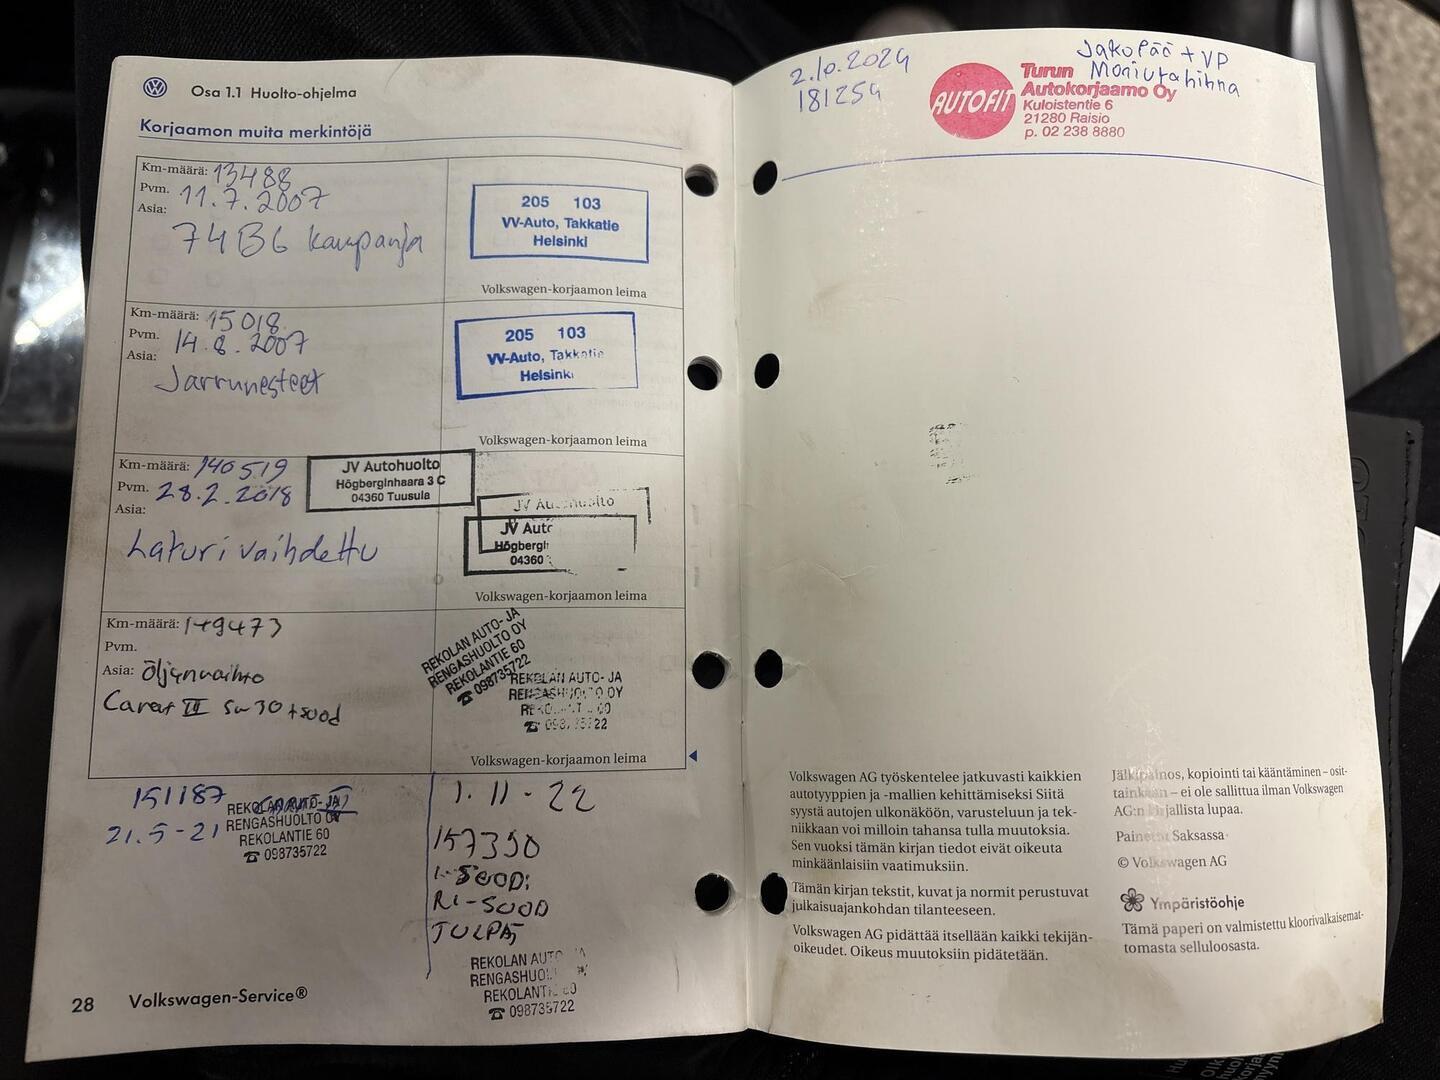 Osa 1.1 Huolto-ohjelma
Korjaamon muita merkintöjä
Km-määrä: 13488
Pvm. 11.7.2007
Asia:
74B6 kampanja
205 103
VV-Auto, Takkatie
Helsinki
Volkswagen-korjaamon leima
Km-määrä: 15018
Pvm. 14.8.2007
Asia:
Jarrunesteet
205 103
VV-Auto, Takkatie
Helsinki
Volkswagen-korjaamon leima
Km-määrä: 140519
Pvm. 28.2.2018
Asia:
Laturi vaihdettu
JV Autohuolto
Högberginhaara 3 C
04360 Tuusula
JV Autohuolto
JV Auto
Högbergi
04360
Volkswagen-korjaamon leima
Km-määrä: 149473
Pvm.
Asia: Öljynvaihto
Carat III 5w30 + suod
REKOLAN AUTO- JA
RENGASHUOLTO OY
REKOLANTIE 60
☎ 098735722
REKOLAN AUTO- JA
RENGASHUOLTO OY
REKOLANTIE 60
☎ 098735722
Volkswagen-korjaamon leima
151187
21.5-21
REKOLAN AUTO-JA
RENGASHUOLTO OY
REKOLANTIE 60
☎ 098735722
1.11-22
157390
RI-SUOD
TULPAT
REKOLAN AUTO- JA
RENGASHUOL
REKOLANTIE 60
☎ 098735722
28 Volkswagen-Service®
2.10.2024
181254
AUTOFIT
Turun
Autokorjaamo Oy
Kuloistentie 6
21280 Raisio
p. 02 238 8880
Jakopää + VP
Moniurahihna
Volkswagen AG työskentelee jatkuvasti kaikkien
autotyyppien ja -mallien kehittämiseksi Siitä
syystä autojen ulkonäköön, varusteluun ja tek-
niikkaan voi milloin tahansa tulla muutoksia.
Sen vuoksi tämän kirjan tiedot eivät oikeuta
minkäänlaisiin vaatimuksiin.
Tämän kirjan tekstit, kuvat ja normit perustuvat
julkaisuajankohdan tilanteeseen.
Volkswagen AG pidättää itsellään kaikki tekijän-
oikeudet. Oikeus muutoksiin pidätetään.
Jälkipainos, kopiointi tai kääntäminen – osit-
tainkaan – ei ole sallittua ilman Volkswagen
AG:n kirjallista lupaa.
Painettu Saksassa
© Volkswagen AG
Ympäristöohje
Tämä paperi on valmistettu kloorivalkaisemat-
tomasta selluloosasta.